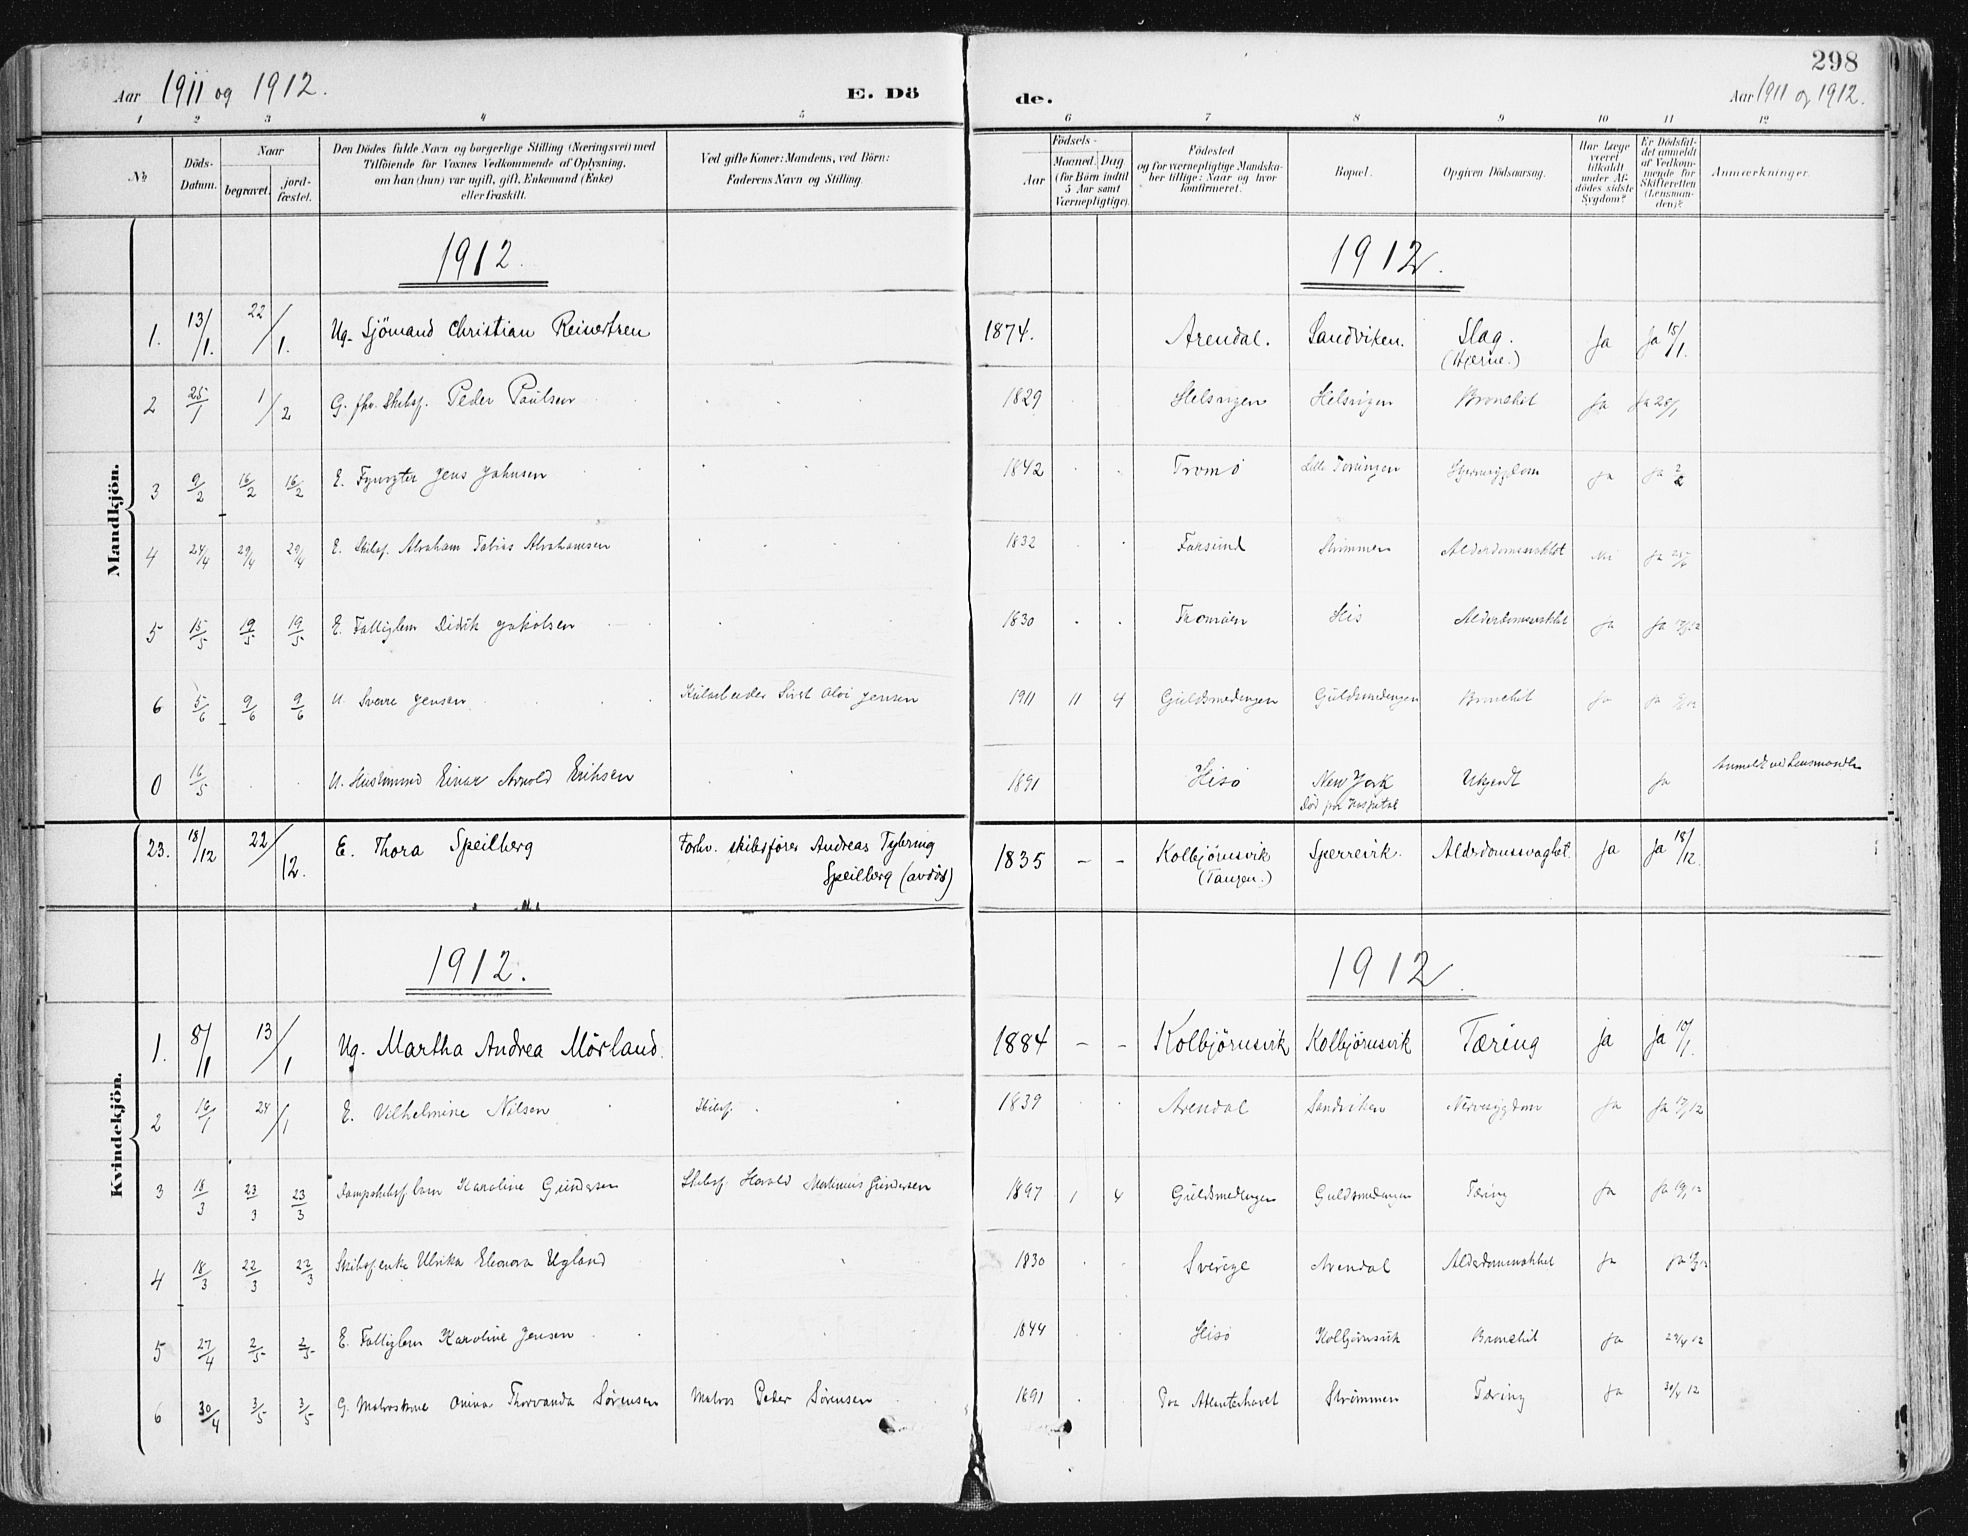 298
Aar 1911 og 1912. E. Dö de. Aar 1911 og 1912.
1 2 3 4 5 6 7 8 9 10 11 12
No
Döds-Datum.
Naar
begravet.
jord-fæstet.
Den Dödes fulde Navn og borgerlige Stilling (Næringsvei) med
Tilföiende for Voxnes Vedkommende af Oplysning,
om han (hun) var ugift, gift, Enkemand (Enke)
eller fraskilt.
Ved gifte Koner: Mandens, ved Börn:
Faderens Navn og Stilling.
Födsels-
Aar
Maaned. Dag
(for Börn indtil
5 Aar samt
Værnepligtige).
Födested
og for værnepligtige Mandska-
ber tillige: Naar og hvor
konfirmeret.
Bopæl.
Opgiven Dödsaarsag.
Har Læge
været
tilkaldt
under Af-
dödes sidste
Sygdom?
Er Dödsfal-
det anmeldt
af Vedkom-
mende for
Skifteretten
(Lensman-
den)?
Anmærkninger.
Mandkjön.
1912. 1912.
1. 13/1. 22/1. Ug. Sjömand Christian Reinertsen 1874. Arendal. Sandviken. Slag. (Hjerne.) Ja Ja 15/1.
2 25/1 1/2 G. fhv. Skibsf. Peder Paulsen 1829 Helsvigen Helsvigen Bronchit Ja Ja 28/1
3 9/2 16/2 16/2 E. Fyrvogter Jens Johnsen 1842 Tromö Lille Torungen Ja Ja
4 24/4 29/4 29/4 E. Skibsf. Abraham Tobias Abrahamsen 1832 Farsund Strømmen Alderdomssvakhet Nei Ja 25/4
5 15/5 19/5 19/5 E. Fattiglem Didrik Jakobsen 1830 Tromøen His Alderdomssvakhet Ja Ja
6 5/6 9/6 9/6 U. Sverre Jensen Jensen 1911 11 4 Guldsmedengen Guldsmedengen Bronchit Ja Ja
0 16/5 U. Einar Arnold Eriksen 1891 Hisö New York Død paa Hospital Ukjendt Ja Anmeldt ved Lensmanden
Kvindekjön.
23. 18/12 22/12. E. Thora Speilberg Forhv. skibsfører Andreas Tybring Speilberg (avdöd) 1835 – – Kolbjörnsvik (Tangen.) Sperrevik. Alderdomssvaghet. Ja Ja 18/12.
1912. 1912.
1. 8/1 13/1 Ug. Martha Andrea Mörland. 1884 – – Kolbjörnsvik Kolbjörnsvik Tæring Ja Ja 10/1.
2 16/1 24/1 E. Vilhelmine Nilsen Skibsf. 1839 Arendal Sandviken Nervesygdom Ja Ja 17/1 12
3 18/3 23/3 23/3 Dampskibsf. barn Karoline Gundersen Skibsf. Harald Martinius Gundersen 1897 1 4 Guldsmedengen Guldsmedengen Tæring Ja Ja 19/3 12
4 18/3 22/3 22/3 Skibsf enke Ulrika Eleonora Ugland 1830 Sverige Arendal Alderdomssvakhet Ja Ja
5 27/4 2/5 2/5 E. Fattiglem Karoline Jensen 1844 Hisö Kolbjörnsvik Bronchit Ja 29/4 12
6 30/4 3/5 3/5 G. Matroskone Anina Thorvanda Sørensen Matros Peder Sørensen 1891 Paa Atlanterhavet Strömmen Tæring Ja 30/4 12